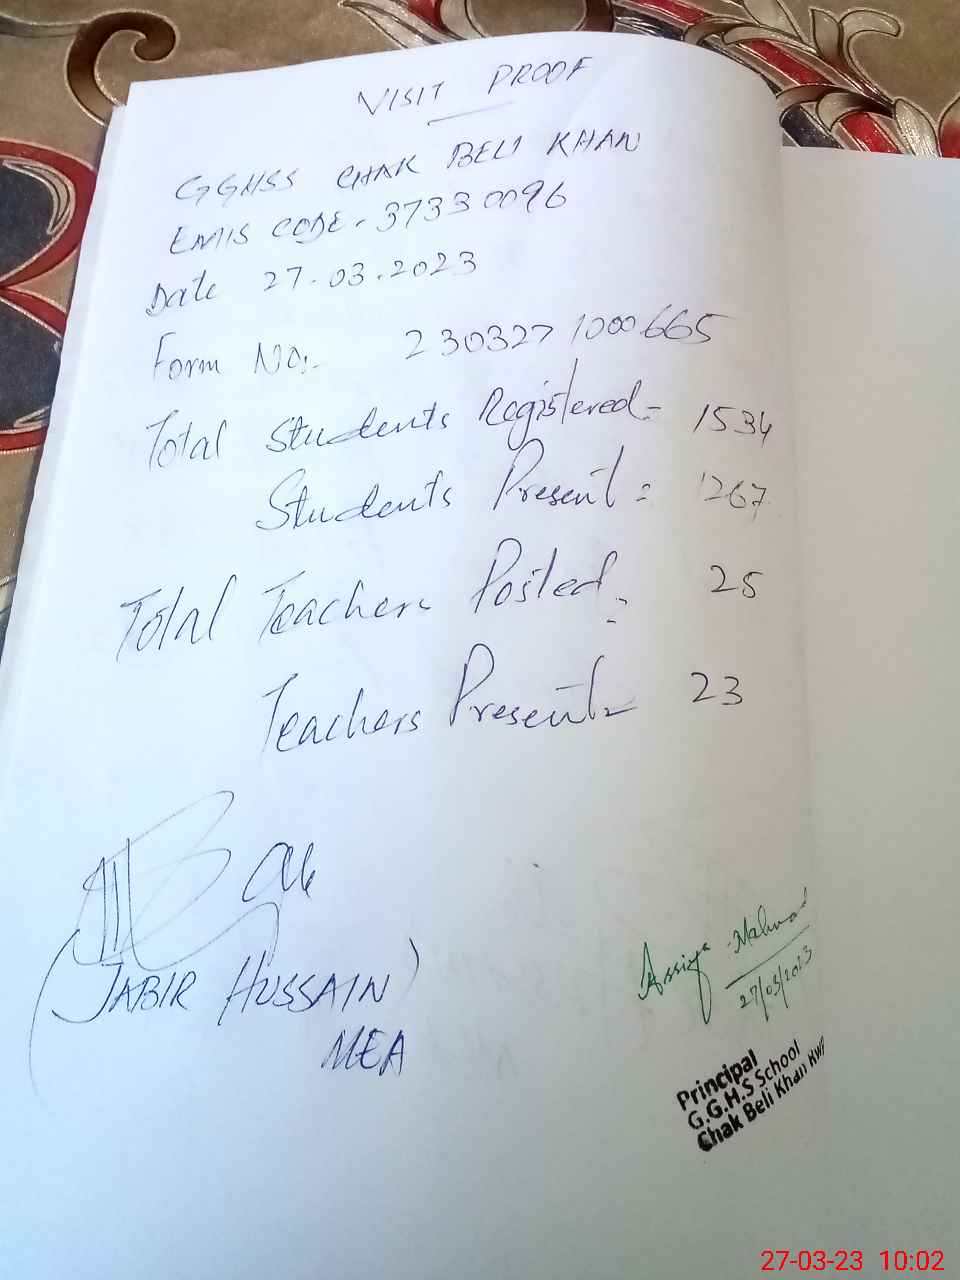 VISIT PROOF
GGHSS CHAK BELI KHAN
EMIS CODE - 37330096
Date 27.03.2023
Form No:. 2303271000665
Total Students Registered = 1534
Students Present = 1267
Total Teachers Posted = 25
Teachers Present = 23
(JABIR HUSSAIN)
MEA
Assiya
27/03/2023
Principal
G.G.H.S School
Chak Beli Khan
27-03-23 10:02